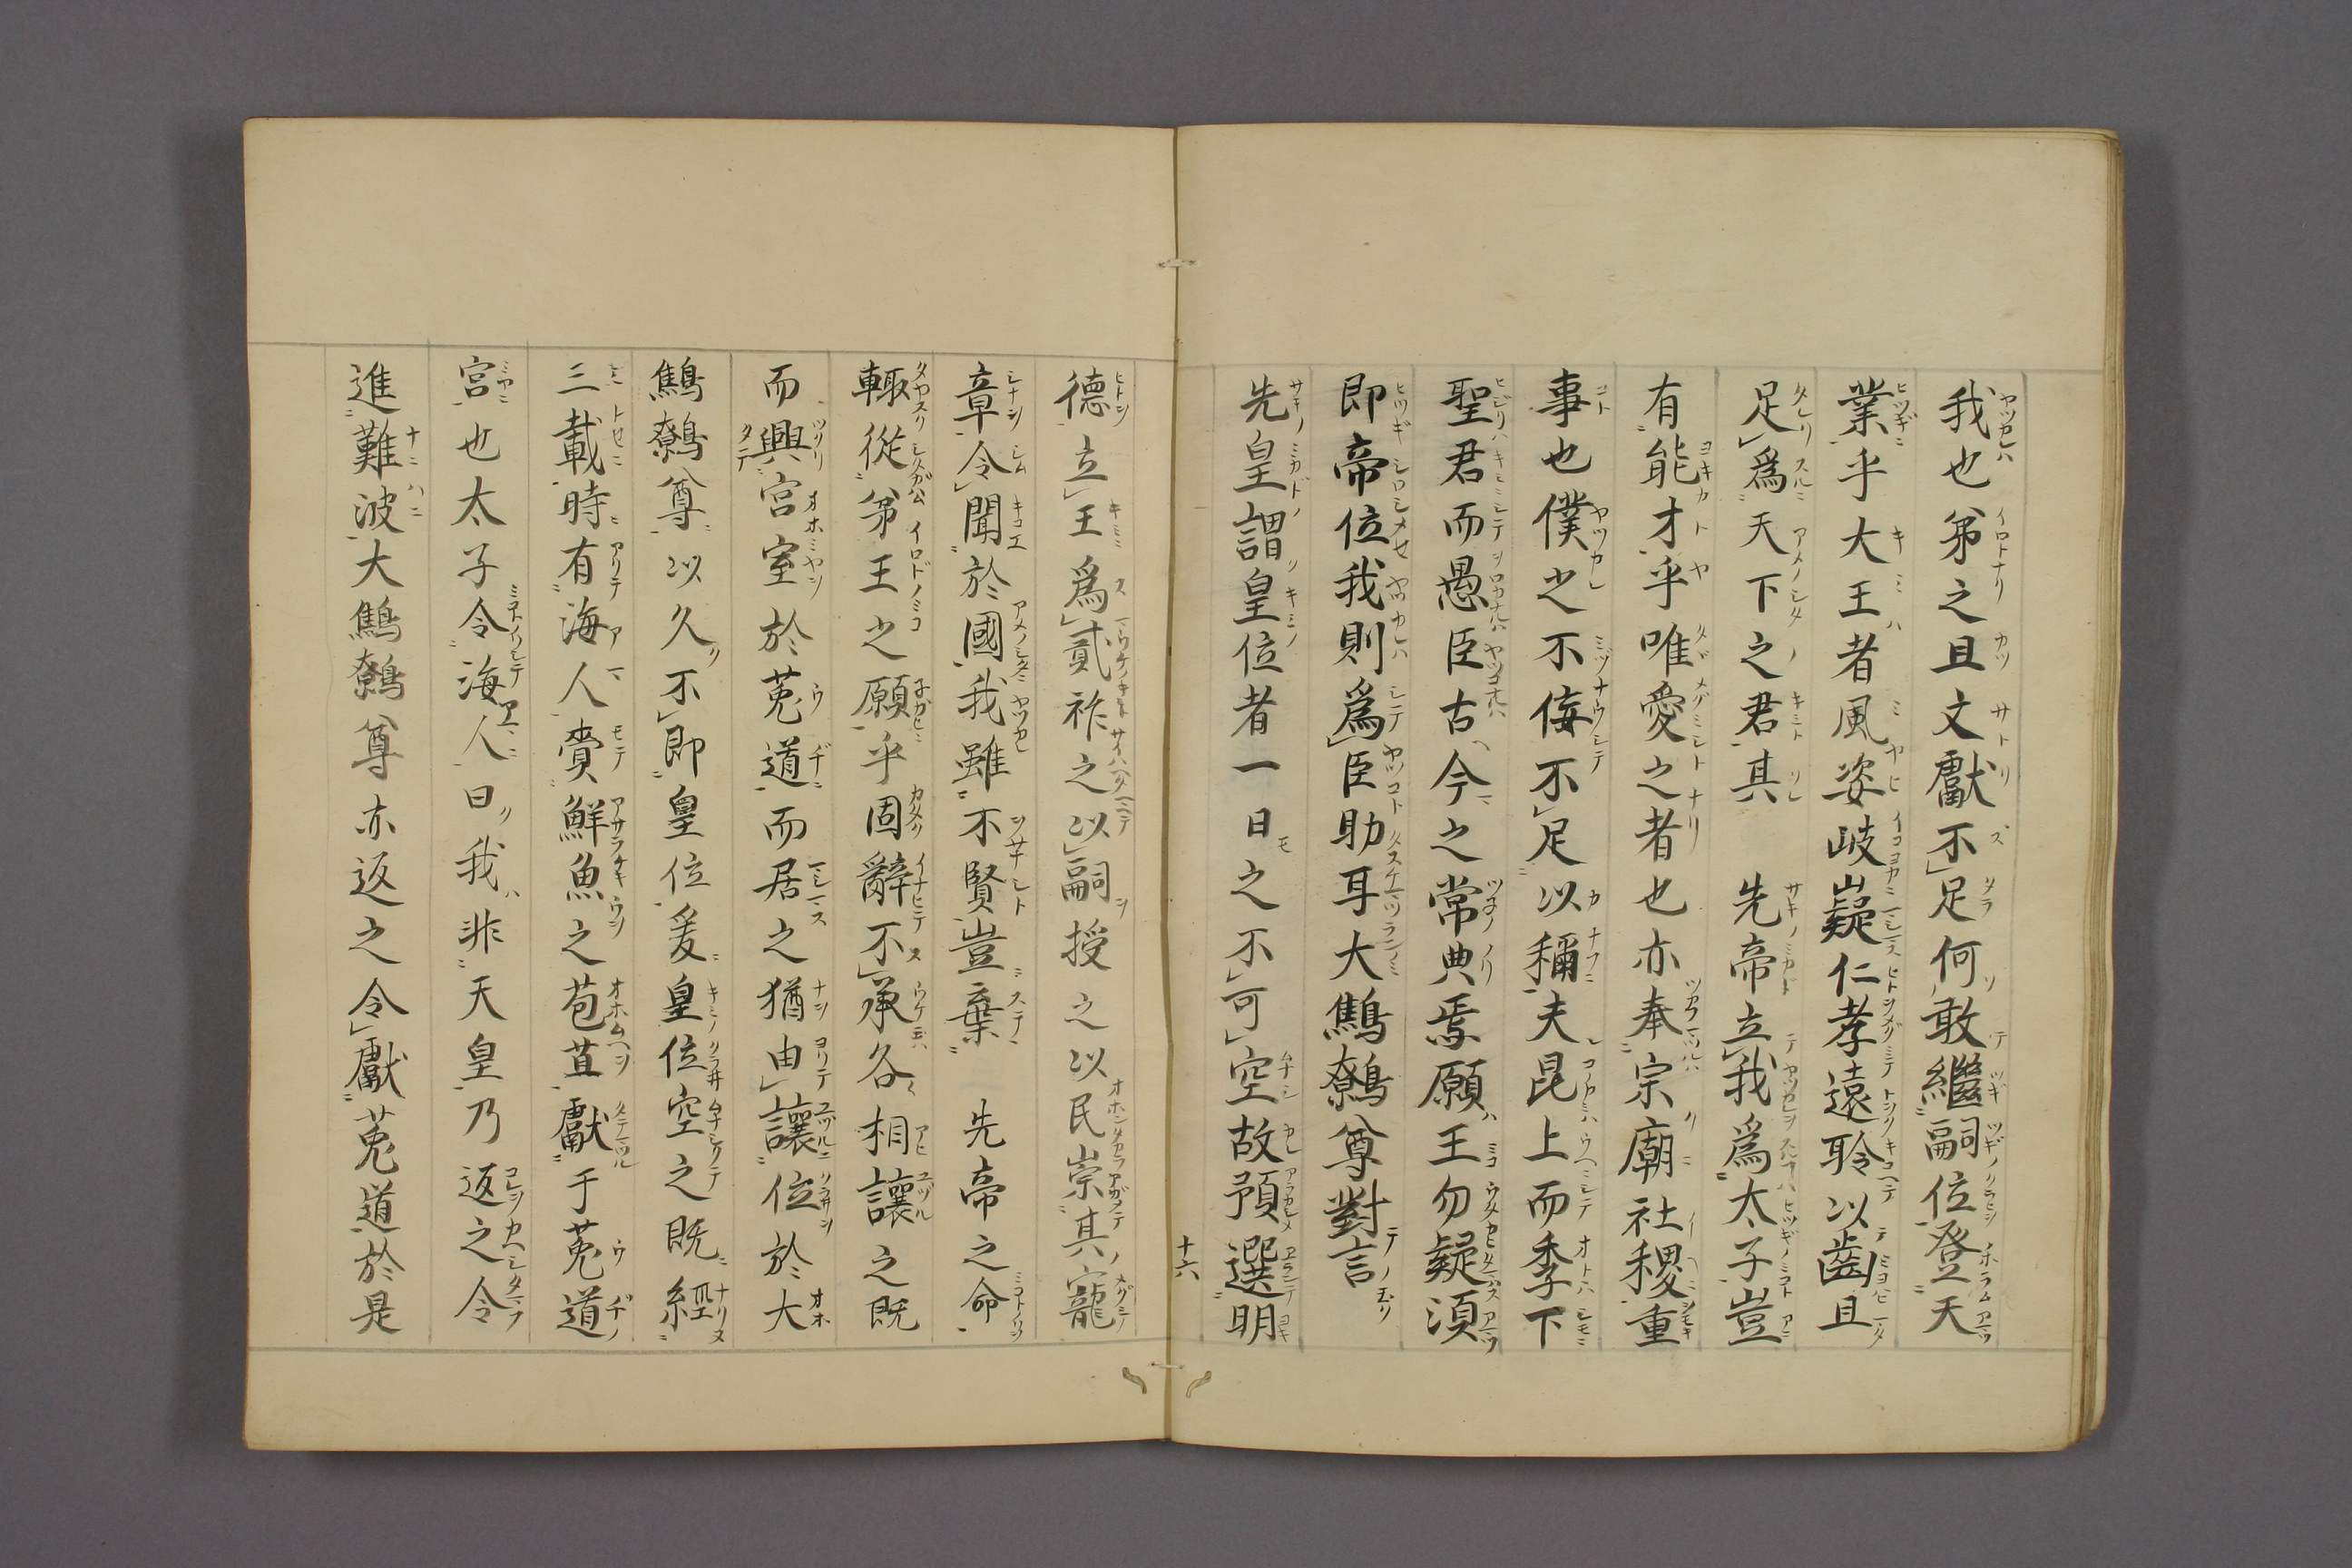 我也弟之且文獻不足何敢繼嗣位登天
業乎大王者風姿岐嶷仁孝遠聆以齒且
足爲天下之君其　先帝立我爲太子豈
有能才乎唯愛之者也亦奉宗廟社稷重
事也僕之不侫不足以稱夫昆上而季下
聖君而愚臣古今之常典焉願王勿疑須
即帝位我則爲臣助耳大鷦鷯尊對言
先皇謂皇位者一日之不可空故預選明
十六
德立王爲貳祚之以嗣授之以民崇其寵
章令聞於國我雖不賢豈棄　先帝之命
輙從弟王之願乎固辭不承各相讓之既
而興宮室於菟道而居之猶由讓位於大
鷦鷯尊以久不即皇位爰皇位空之既經
三載時有海人賷鮮魚之苞苴獻于菟道
宮也太子令海人曰我非天皇乃返之令
進難波大鷦鷯尊亦返之令獻菟道於是